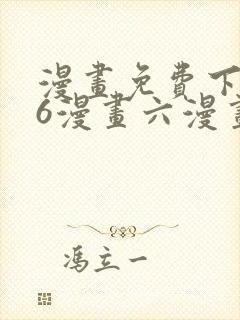 漫畫免費下
6漫畫六漫畫
馮立一